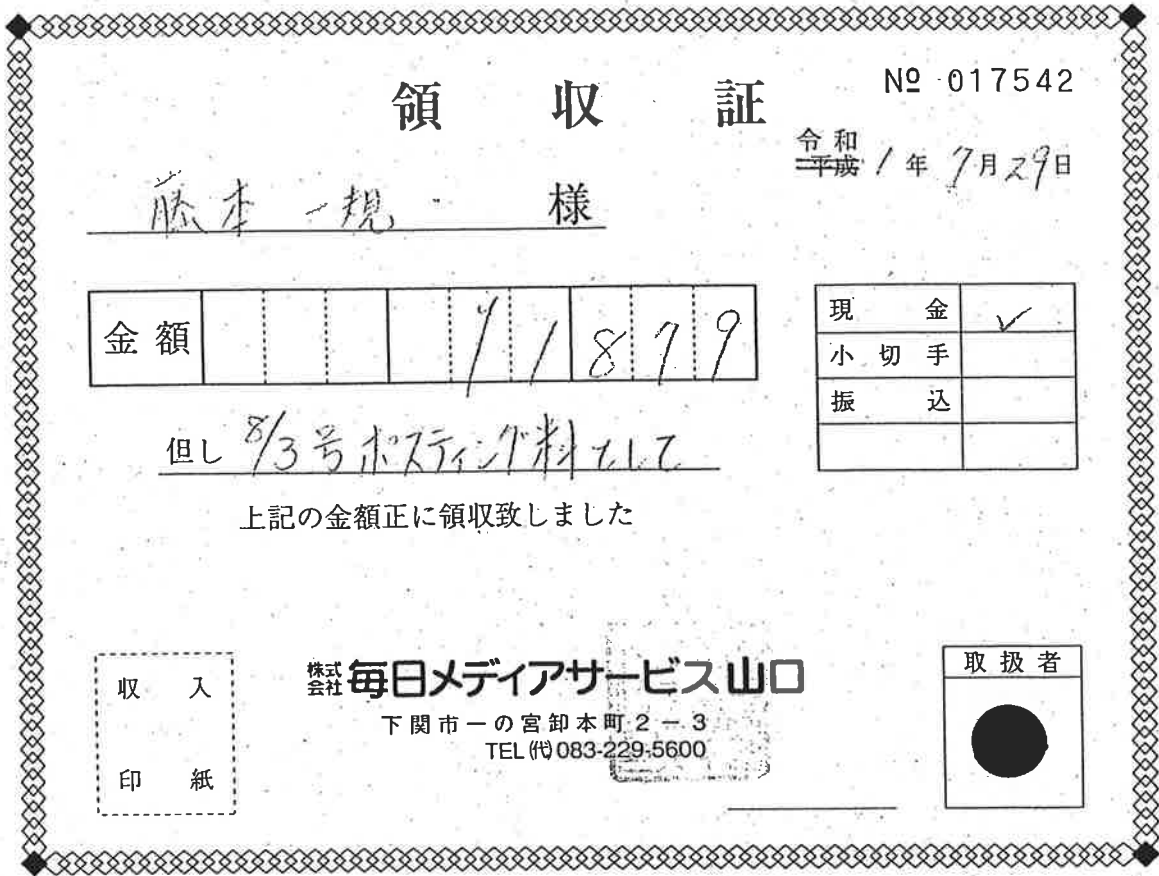 領収証
№ 017542
令和
平成 1年 7月29日
藤本一規 様
金額 ¥11879
現金 ✓
小切手
振込
但し 8/3号ポスティング料として
上記の金額正に領収致しました
収入
印紙
株式会社 毎日メディアサービス山口
下関市一の宮卸本町2-3
TEL(代)083-229-5600
取扱者